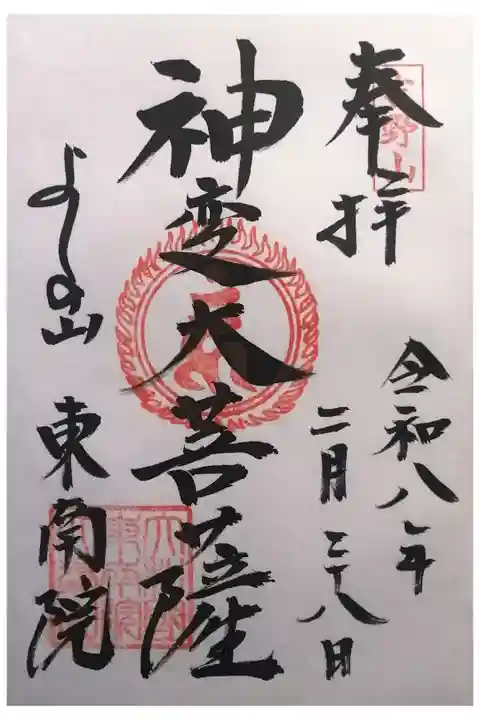 奉拝
吉野山
令和八年
二月二十八日
神変大菩薩
よしの山
東南院